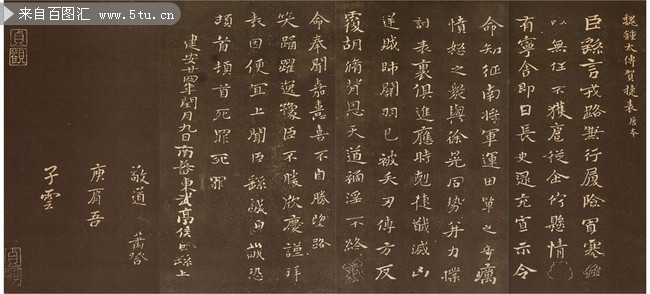 来自百图汇 www.5tu.cn
魏鍾太傅賀捷表 唐本
臣繇言戎路兼行履險冒寒
以無任不獲扈從企佇懸情
有寧舍即日長史逯充宣示令
命知征南將軍運田單之奇厲
憤怒之衆與徐晃同勢并力撲
討表裏俱進應時剋捷馘滅凶
逆賊帥關羽已被矢刃傅方反
覆胡脩背恩天道禍淫不終
命奉聞嘉憙喜不自勝望路
笑踊躍逸豫臣不勝欣慶謹拜
表因便宜上聞臣繇誠誠恐
頓首頓首死罪死罪
建安廿四年閏月九日南蕃東武亭侯臣繇上
敬道
庾肩吾
子雲
貞觀